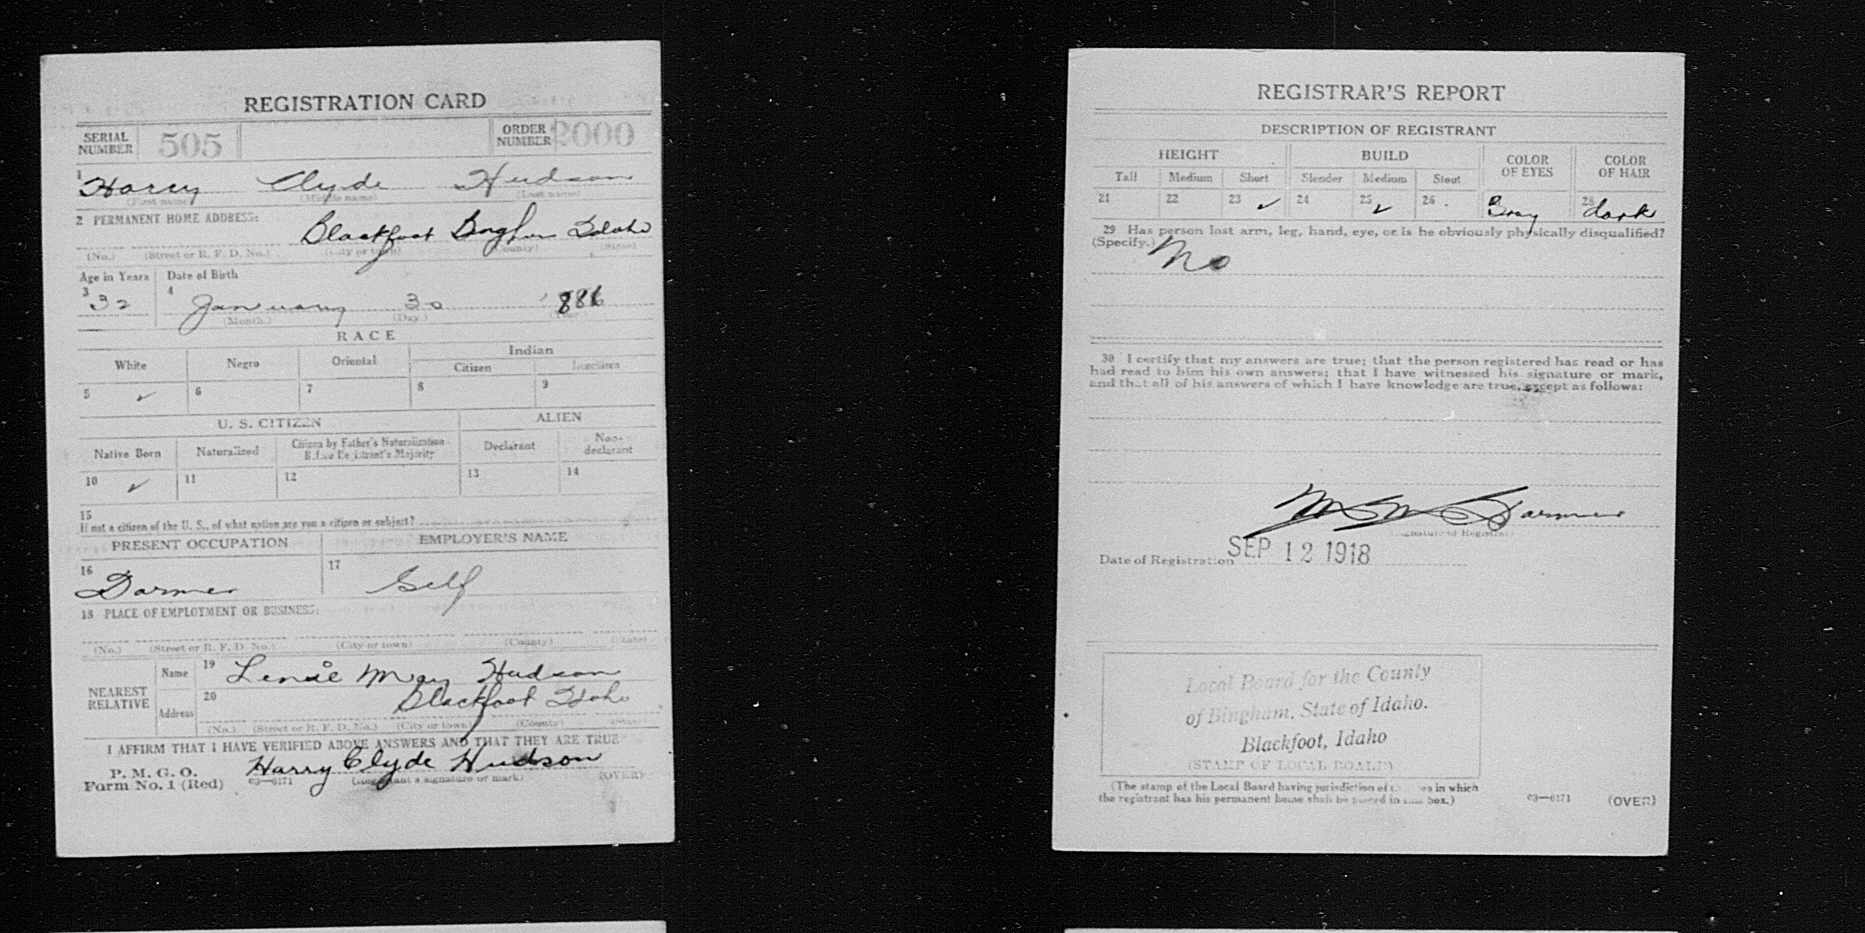 REGISTRATION CARD
SERIAL NUMBER 505 ORDER NUMBER 2000
1 Harry Clyde Hudson
(First name) (Middle name) (Last name)
2 PERMANENT HOME ADDRESS:
Blackfoot Bingham Idaho
(No.) (Street or R. F. D. No.) (City or town) (County) (State)
Age in Years Date of Birth
3 32 4 January 30 1886
(Month.) (Day.) (Year.)
RACE
White Negro Oriental Indian
Citizen Noncitizen
5 ✓ 6 7 8 9
U. S. CITIZEN ALIEN
Native Born Naturalized Citizen by Father's Naturalization Before Registrant's Majority Declarant Non-declarant
10 ✓ 11 12 13 14
15
If not a citizen of the U. S., of what nation are you a citizen or subject?
PRESENT OCCUPATION EMPLOYER'S NAME
16 Farmer 17 Self
18 PLACE OF EMPLOYMENT OR BUSINESS:
(No.) (Street or R. F. D. No.) (City or town) (County) (State)
NEAREST RELATIVE Name 19 May Hudson
Address 20 Blackfoot Idaho
(No.) (Street or R. F. D. No.) (City or town) (County) (State)
I AFFIRM THAT I HAVE VERIFIED ABOVE ANSWERS AND THAT THEY ARE TRUE
P. M. G. O.
Form No. 1 (Red) 03—6171 Harry Clyde Hudson
(Registrant's signature or mark) (OVER)
REGISTRAR'S REPORT
DESCRIPTION OF REGISTRANT
HEIGHT BUILD COLOR OF EYES COLOR OF HAIR
Tall Medium Short Slender Medium Stout
21 22 23 ✓ 24 25 ✓ 26 Gray 28 dark
29 Has person lost arm, leg, hand, eye, or is he obviously physically disqualified?
(Specify.) No
30 I certify that my answers are true; that the person registered has read or has
had read to him his own answers; that I have witnessed his signature or mark,
and that all of his answers of which I have knowledge are true, except as follows:
(Signature of Registrar)
Date of Registration SEP 12 1918
Local Board for the County
of Bingham, State of Idaho.
Blackfoot, Idaho
(STAMP OF LOCAL BOARD)
(The stamp of the Local Board having jurisdiction of in which
the registrant has his permanent home shall be placed in this box.)
03—6171 (OVER)